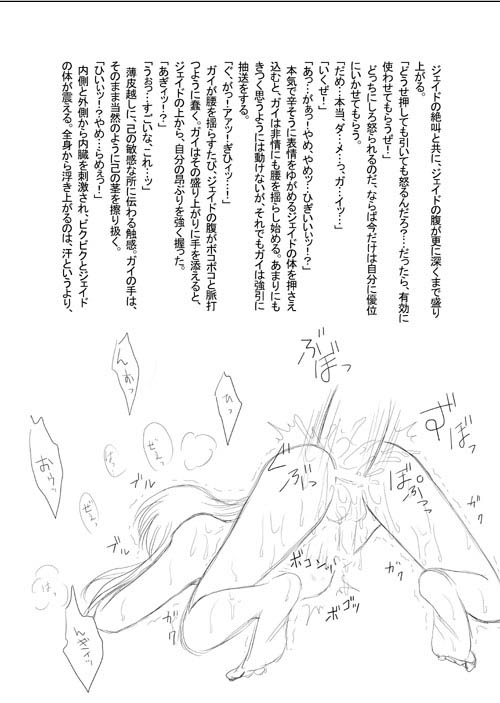 ジェイドの絶叫と共に、ジェイドの腹が更に深くまで盛り
上がる。
「どうせ押しても引いても怒るんだろ？…だったら、有効に
使わせてもらうぜ！」
どっちにしろ怒られるのだ、ならば今だけは自分に優位
にいかせてもらう。
「だめ…本当、ダ…メ…っ、ガ…イッ…」
「いくぜ！」
「あっ…がぁっ！やめ、やめッ…ひぎいいッ！？」
本気で辛そうに表情をゆがめるジェイドの体を押さえ
込むと、ガイは非情にも腰を揺らし始める。あまりにも
きつく思うようには動けないが、それでもガイは強引に
抽送をする。
「ぐ、がっ！アァッ！ぎひィッ…！」
ガイが腰を揺らすたび、ジェイドの腹がボコボコと脈打
つように蠢く。ガイはその盛り上がりに手を添えると、
ジェイドの上から、自分の昂ぶりを強く握った。
「あぎィッ！？」
「うぉっ…すごいな、これ…ッ」
薄皮越しに、己の敏感な所に伝わる触感。ガイの手は、
そのまま当然のように己の茎を擦り扱く。
「ひいいッ！？やめ…らめぇっ！」
内側と外側から内臓を刺激され、ビクビクとジェイド
の体が震える。全身から浮き上がるのは、汗というより、
ぶぼっ
ずぼっ
ぐぶっ
ひっ
ぜぇっ
はっ
ぜぇっ
おぉッ
ブル
ブル
ガク
ガク
ガク
ガク
ボコンッ
ボゴッ
は、
んぎィッ